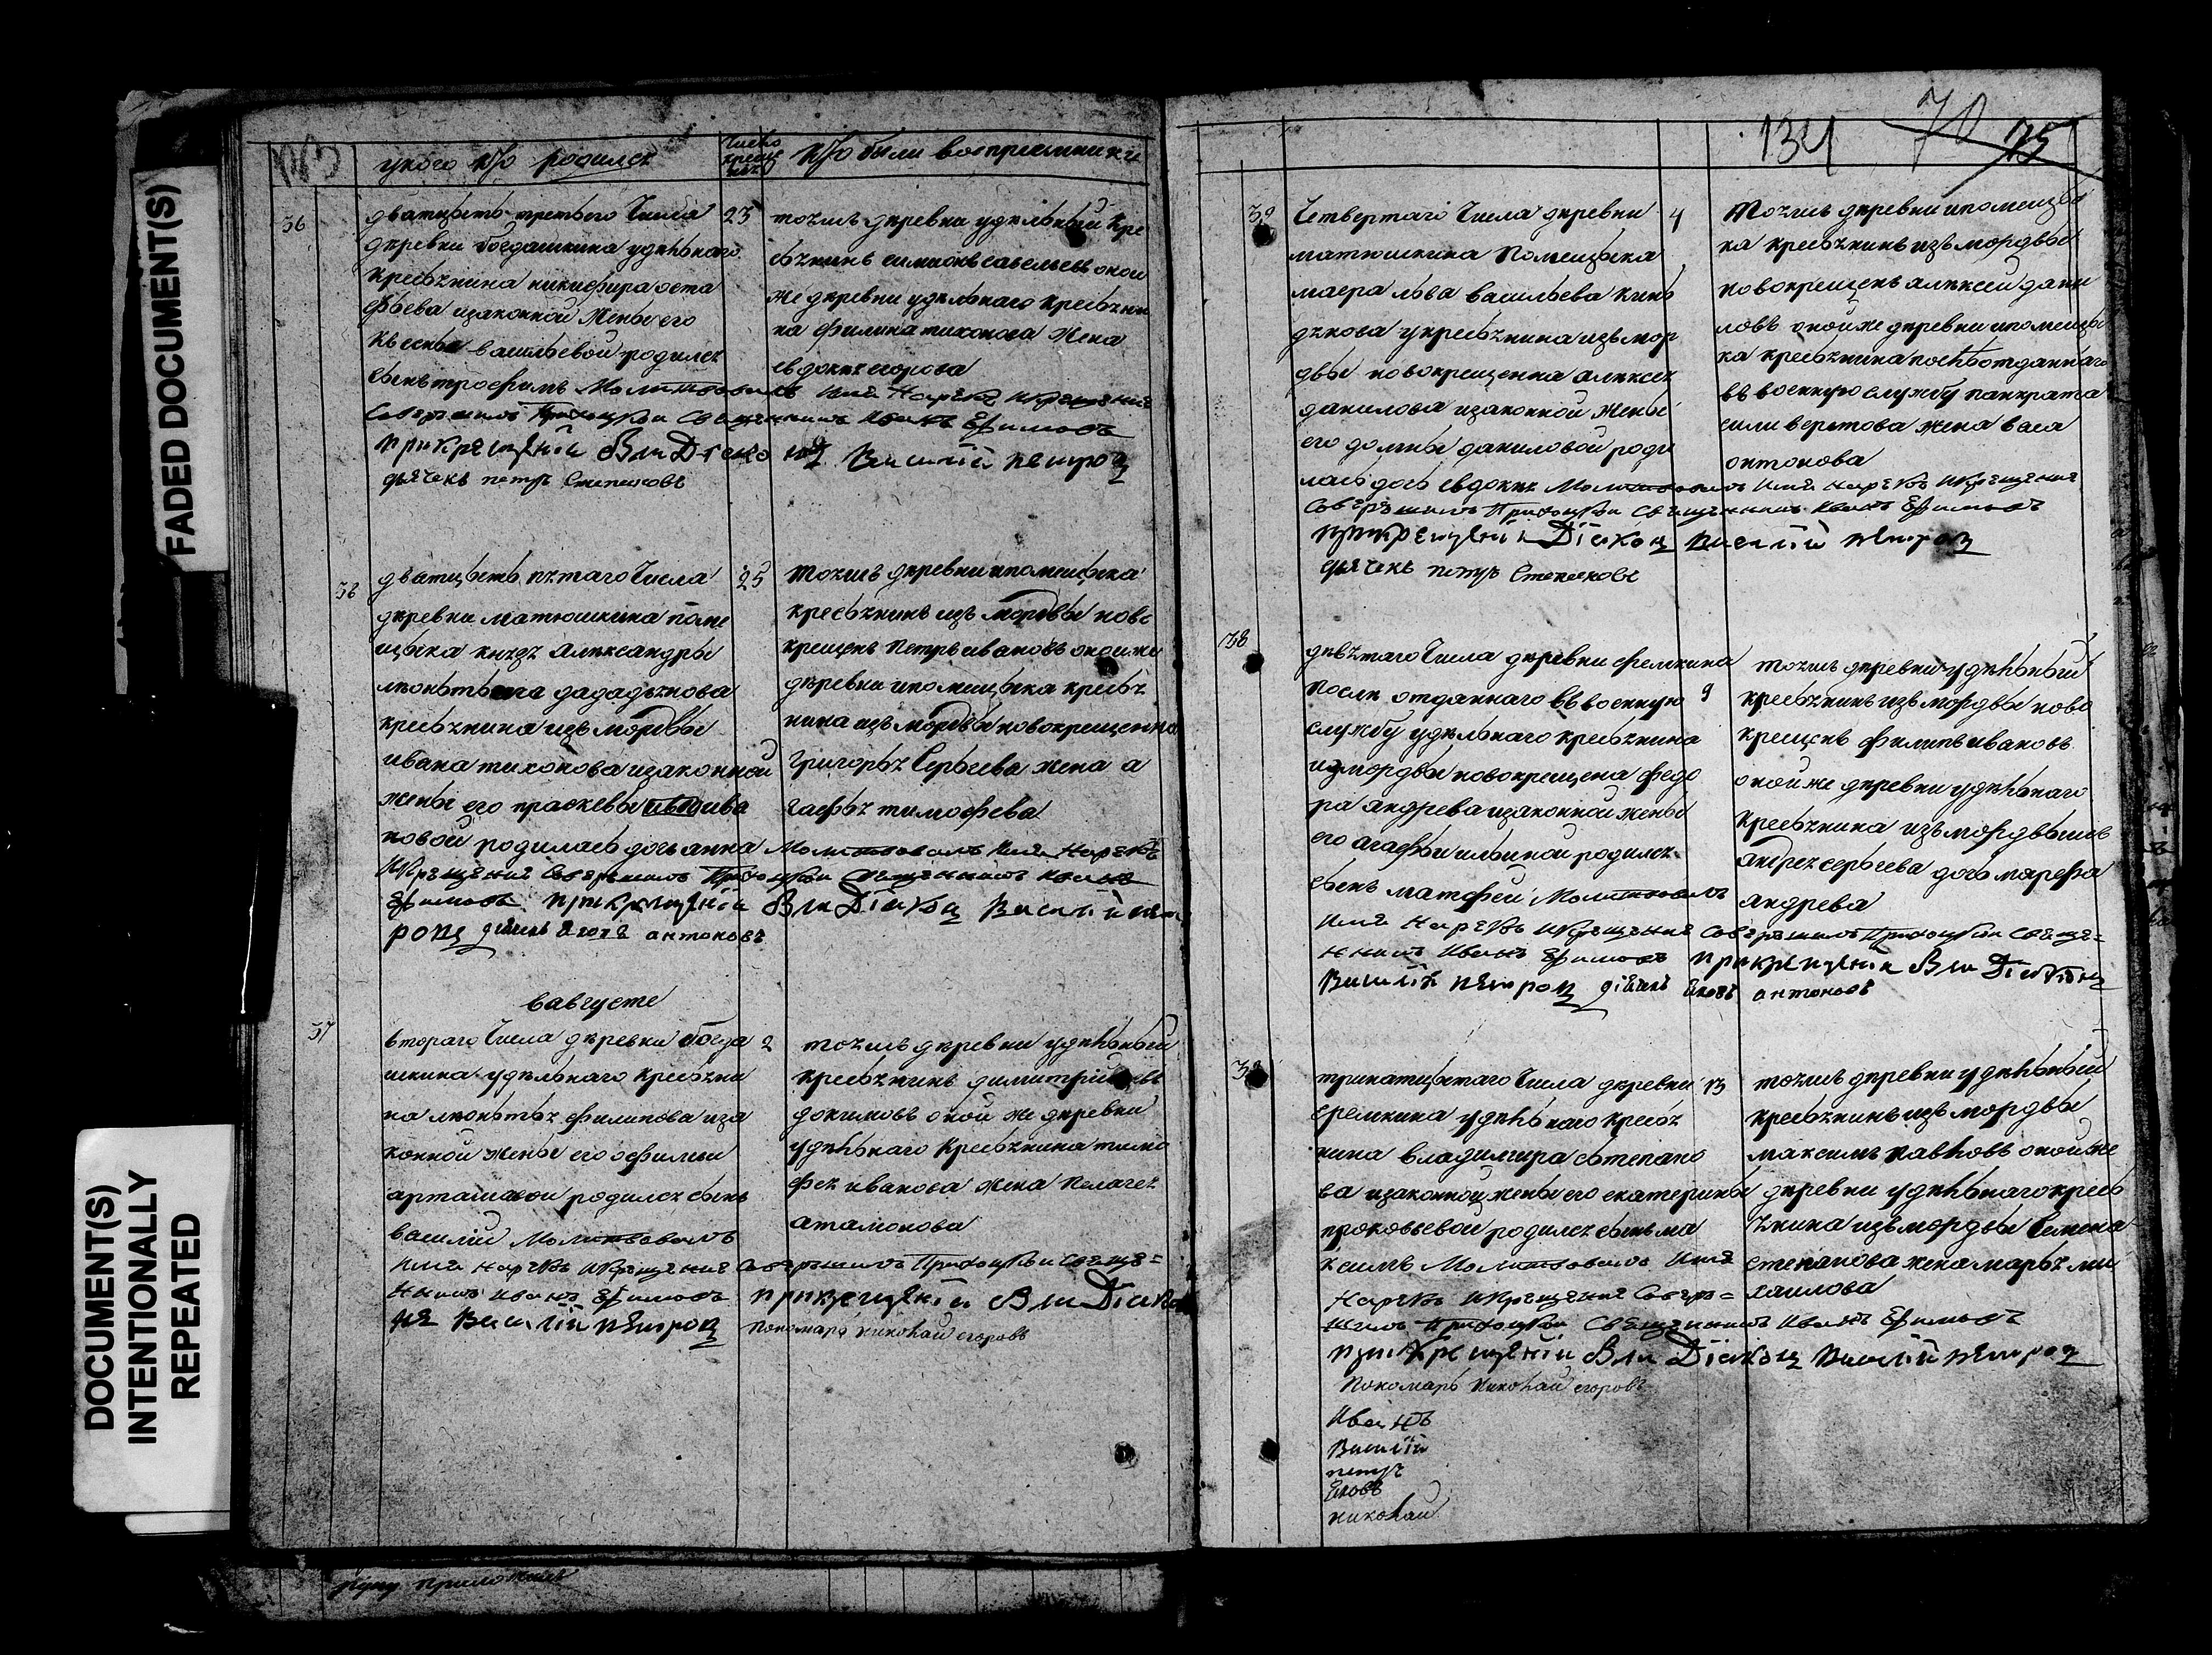 FADED DOCUMENT(S)
DOCUMENT(S)
INTENTIONALLY
REPEATED
у кого кто родился
число
крещения
кто были восприемники
36
дватцеть третьего числа
деревни богдашкина удельнаго
кресьянина никифира оста
фьева изаконной жены его
васильевой родился
сынъ трофимъ Молитвовалъ Имя Нарекъ и Крещение
Совершилъ Приходский Священникъ Иванъ Ефимовъ
при крещении был Дияконъ Василий петров
дьячекъ петръ Степановъ
23
тоежъ деревни удельный кре
сьянинъ симионъ савельевъ оной
же деревни удельнаго кресьяни
на филипа тихонова жена
евдокия егорова
36
дватцеть пятаго числа
деревни матюшкина поме
щика князя александры
леонтьева дададьянова
кресьянина изъ мордвы
ивана тихонова изаконной
жены его прасковьи ива
новой родилась дочь анна Молитвовалъ Имя Нарекъ
И Крещение Совершилъ Приходский Священникъ Иванъ
Ефимовъ при крещении Был Дияконъ Василий пет
ров дьячекъ яковъ антоновъ
25
тоежъ деревни ипомещика
кресьянинъ изъ мордвы ново
крещенъ петръ ивановъ оной же
деревни ипомещика кресья
нина изъ мордвы новокрещенна
григорья сергеева жена а
гафья тимофева
в августе
37
втораго числа деревни богда
шкина удельнаго кресьяни
на леонтья филипова иза
конной жены его офимьи
арташовой родился сынъ
василий Молитвовалъ
Имя нарекъ и Крещение Совершилъ Приходский Свяще=
нникъ Иванъ Ефимовъ при крещении Был Дияко
нъ Василий петров пономарь николай егоровъ
2
тоежъ деревни удельный
кресьянинъ димитрий
докимовъ оной же деревни
удельнаго кресьянина тимо
фея иванова жена пелагея
атамонова
134
70
75
39
четвертаго числа деревни
матюшкина помещика
маера льва васильева кинь
дякова у кресьянина изъ мор
двы новокрещенна алексея
данилова изаконной жены
его домны даниловой роди
лась дочь евдокия Молитвовалъ Имя Нарекъ И Крещение
Совершилъ Приходский Священникъ Иванъ Ефимовъ
при крещении Диякон василий петров
дьячекъ петръ Степановъ
4
тоежъ деревни ипомещи
ка кресьянинъ изъ мордвы
новокрещенъ алексей дани
ловъ оной же деревни ипомещи
ка кресьянина после отданнаго
въ военную службу панкрата
селиверстова жена васа
онтонова
38
девятаго числа деревни фемкина
после отданнаго въ военную
службу удельнаго кресьянина
из мордвы новокрещена федо
ра андрева изаконной жены
его агафьи ильиной родился
сынъ матфей Молитвовалъ
Имя Нарекъ и Крещение Совершилъ Приходский Свяще=
нникъ Иванъ Ефимовъ при крещении Был Дияконъ
Василий петров дьячекъ яковъ антоновъ
9
тоежъ деревни удельный
кресьянинъ изъ мордвы ново
крещенъ филипъ ивановъ
оной же деревни удельнаго
кресьянина изъ мордвы
андрея сергеева дочь марфа
андрева
39
тринатцетаго числа деревни
еремкина удельнаго кресья
нина владимира степано
ва изаконной жены его екатерины
прокофьевой родился сынъ ма
ксимъ Молитвовалъ Имя
Нарекъ И Крещение Совер=
шилъ Приходский Священникъ Иванъ Ефимовъ
при крещении Был Диякон Василий петров
пономарь николай егоровъ
13
тоежъ деревни удельный
кресьянинъ изъ мордвы
максимъ павловъ оной же
деревни удельнаго кресь
янина изъ мордвы семена
степанова жена марья ми
хаилова
Иванъ
Василий
петръ
яковъ
николай
руку приложилъ